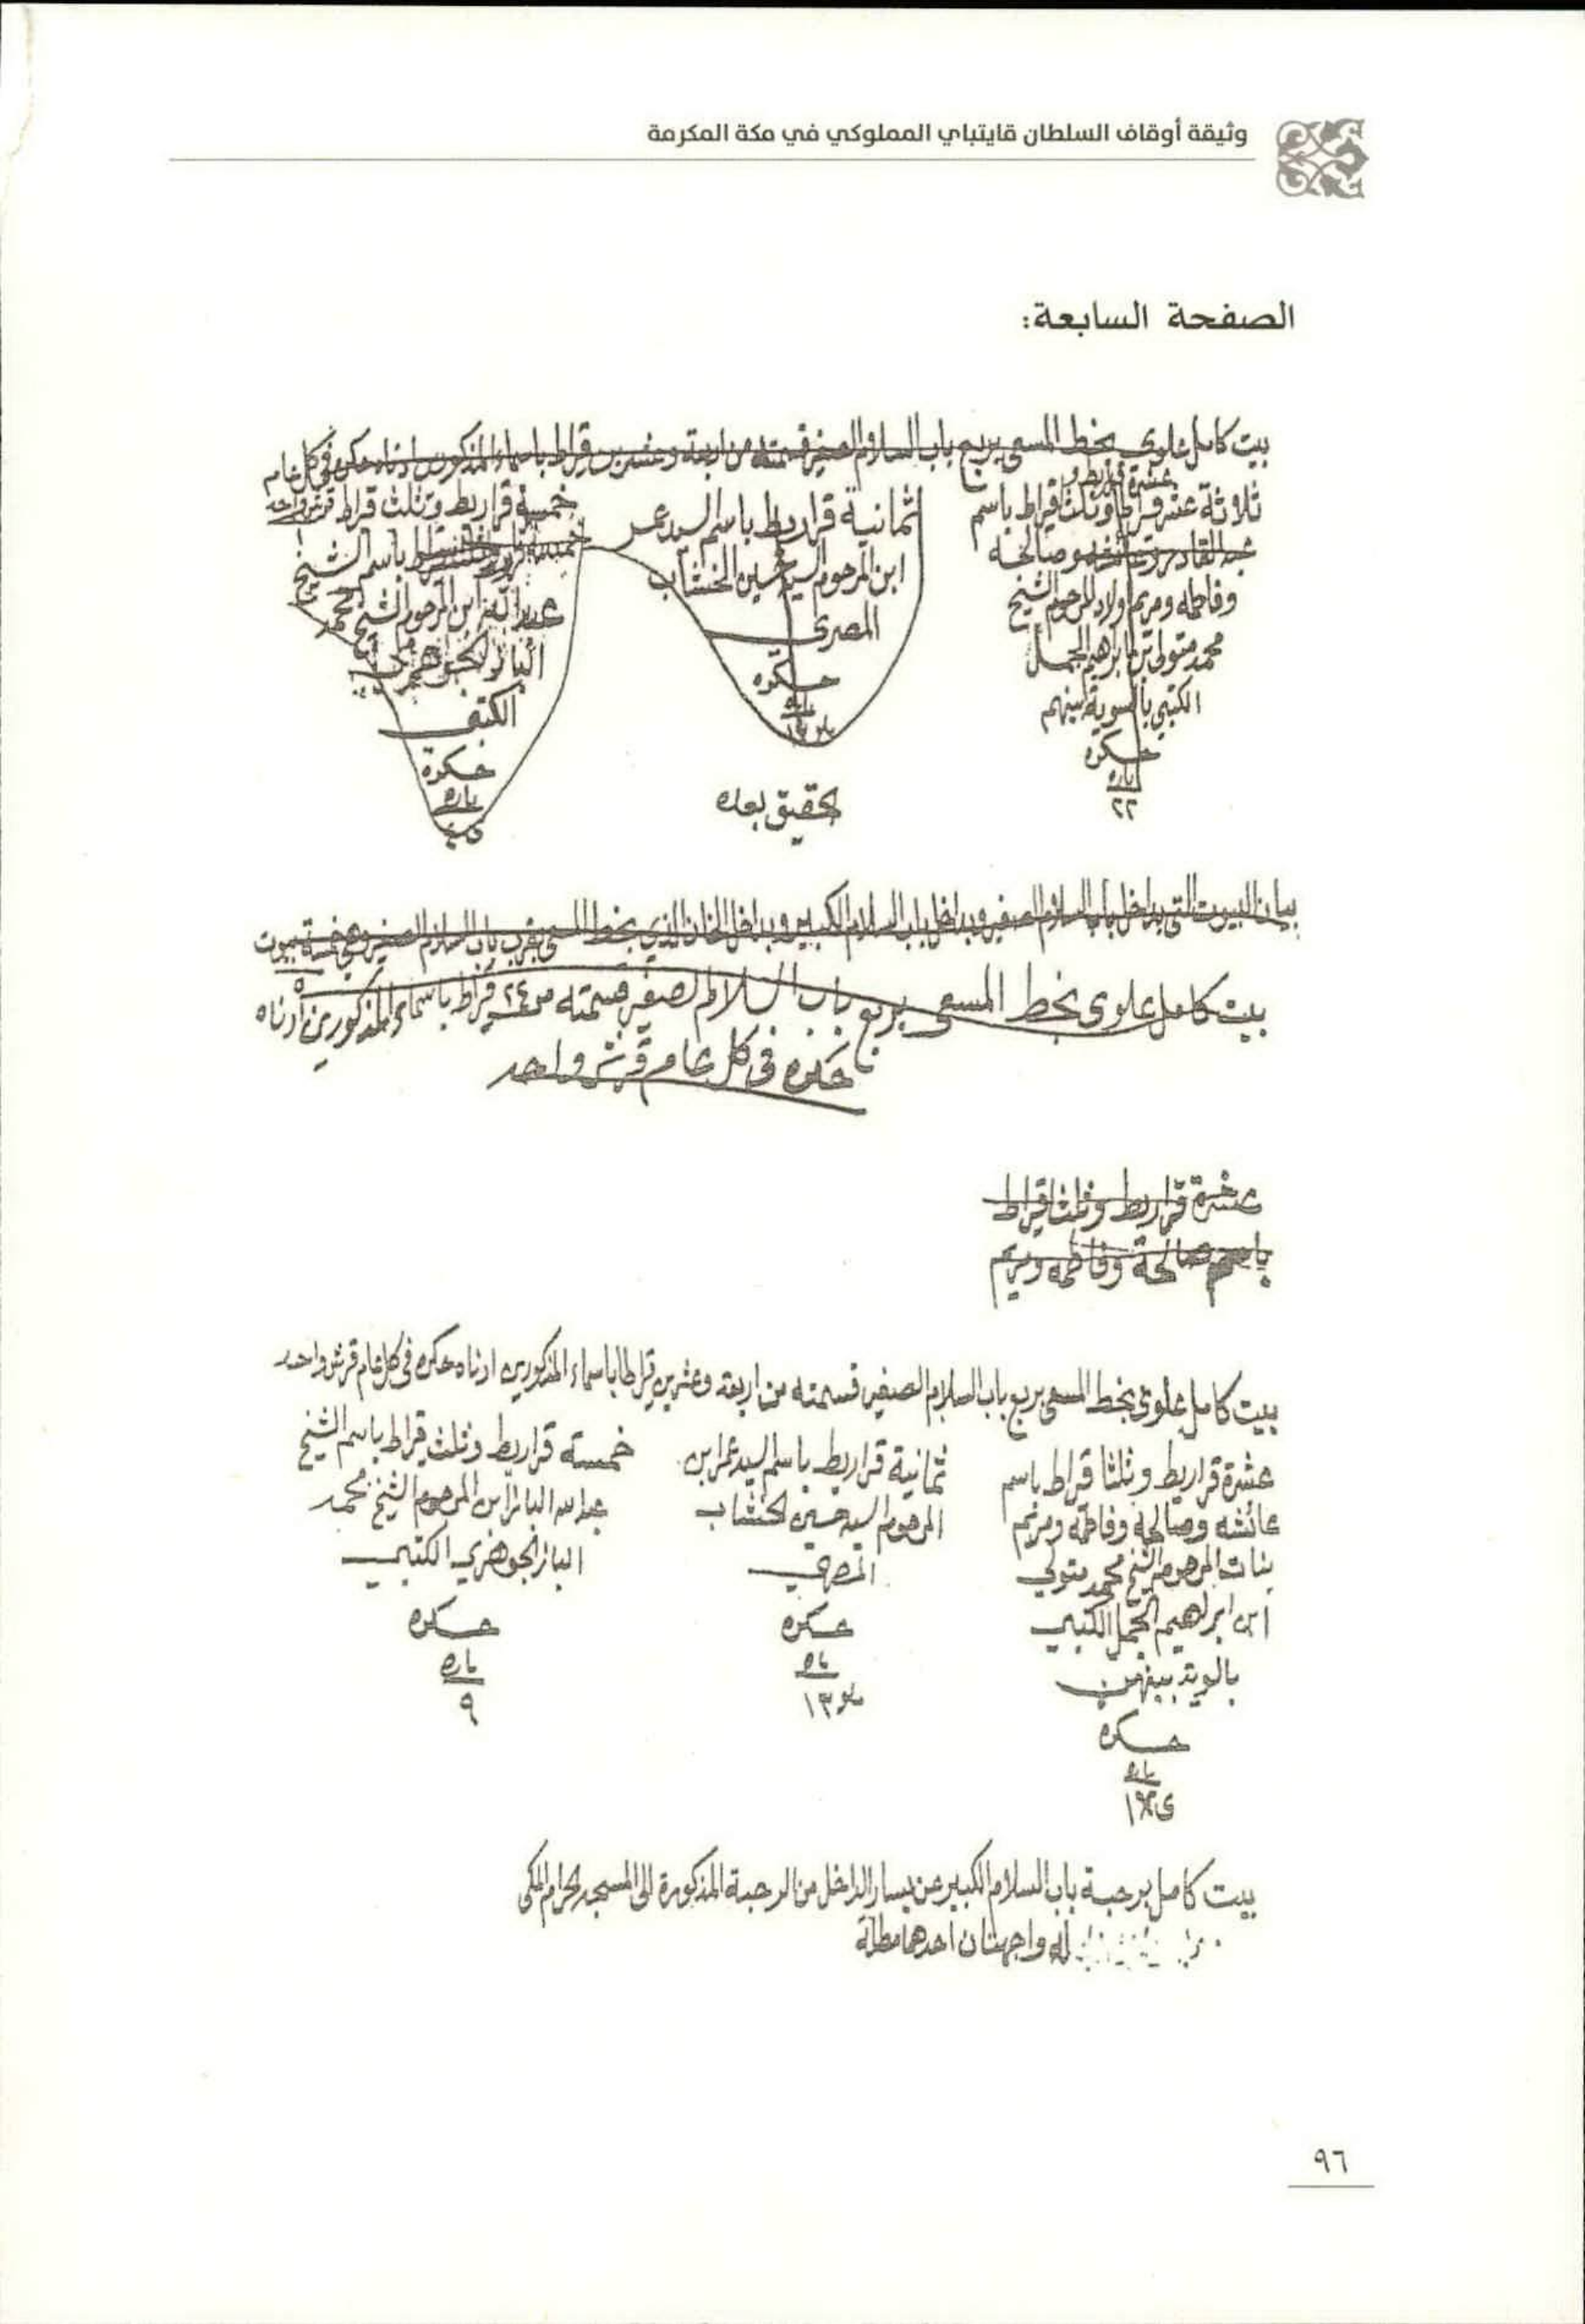 وثيقة أوقاف السلطان قايتباي المملوكي في مكة المكرمة
الصفحة السابعة:
بيت كامل علوى بخط المسعى بربع باب السلام الصغير قسمته من اربعة وعشرين قراط باسماء المذكورين ادناه حكره فى كل عام
قرش واحد
عشرة قراريط و
ثلاثة عشر قراطا وثلث قراط باسم
عبد القادر وصالحه
وفاطمه ومريم اولاد المرحوم الشيخ
محمد متولى بن ابراهيم الجمل
الكتبي بالسوية بينهم
حكره
باره
٢٢
ثمانية قراريط باسم السيد عمر
ابن المرحوم السيد حسين الخشاب
المصرى
حكره
باره
خمسة قراريط وثلث قراط
باسم الشيخ
عبدالله ابن المرحوم الشيخ محمد
الباز الجوهري
الكتبى
حكرة
باره
تحقيق بعده
بيان البيوت التى بداخل باب السلام الصغير وبداخل باب السلام الكبير وبداخل الخان الذي بخط المسعى بقرب باب السلام الصغير وهي خمسة بيوت
٥
بيت كامل علوى بخط المسعى بربع باب السلام الصغير قسمته من ٢٤ قراط باسماء المذكورين ادناه
حكره فى كل عام قرش واحد
عشرة قراريط وثلثا قراط
باسم صالحة وفاطمه ومريم
بيت كامل علوى بخط المسعى بربع باب السلام الصغير قسمته من اربعة وعشرين قراطا باسماء المذكورين ادناه حكره فى كل عام قرش واحد
عشرة قراريط وثلثا قراط باسم
عائشه وصالحه وفاطمه ومريم
بنات المرحوم الشيخ محمد متولي
ابن ابراهيم الجمل الكتبي
بالسوية بينهن
حكره
باره
ثمانية قراريط باسم السيد عمر ابن
المرحوم السيد حسين الخشاب
المصري
حكره
باره
١٣
خمسة قراريط وثلث قراط باسم الشيخ
عبد الله الباز ابن المرحوم الشيخ محمد
الباز الجوهري الكتبي
حكره
باره
٩
بيت كامل برحبة باب السلام الكبير عن يسار الداخل من الرحبة المذكورة الى المسجد الحرام المكى
له واجهتان احدها مطلة
٩٦